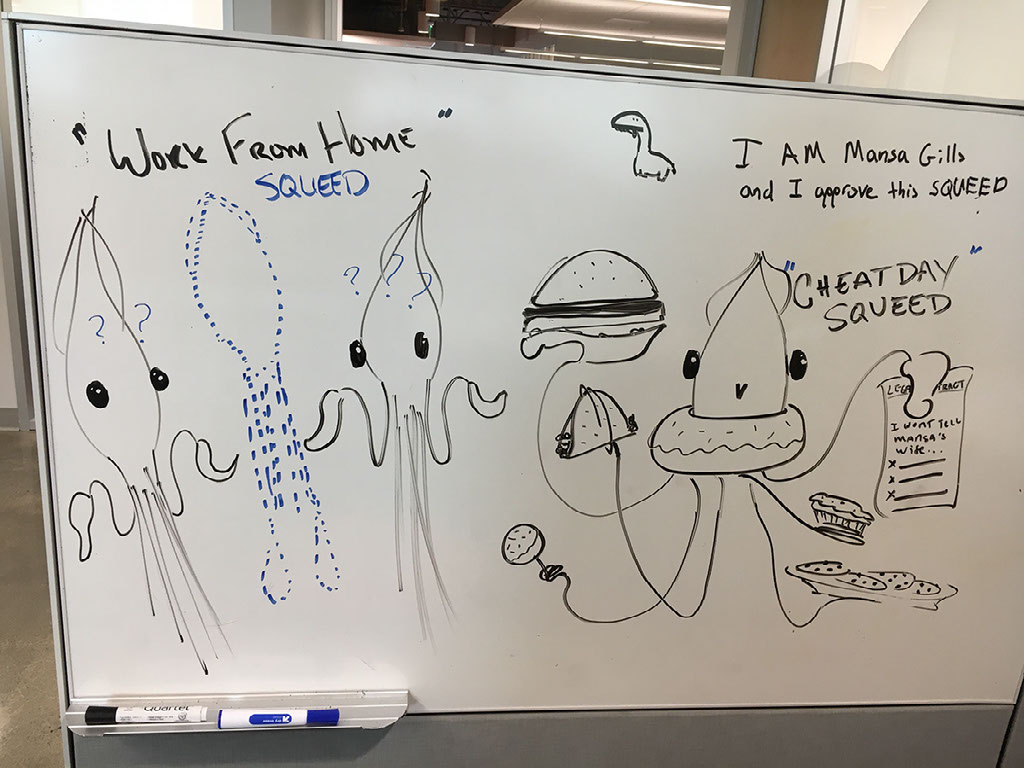 "Work From Home"
SQUEED
? ?
? ? ?
I AM Mansa Gills
and I approve this SQUEED
"CHEAT DAY"
SQUEED
I WONT TELL
MANSA'S
WIFE...
x
x
x
Quartet